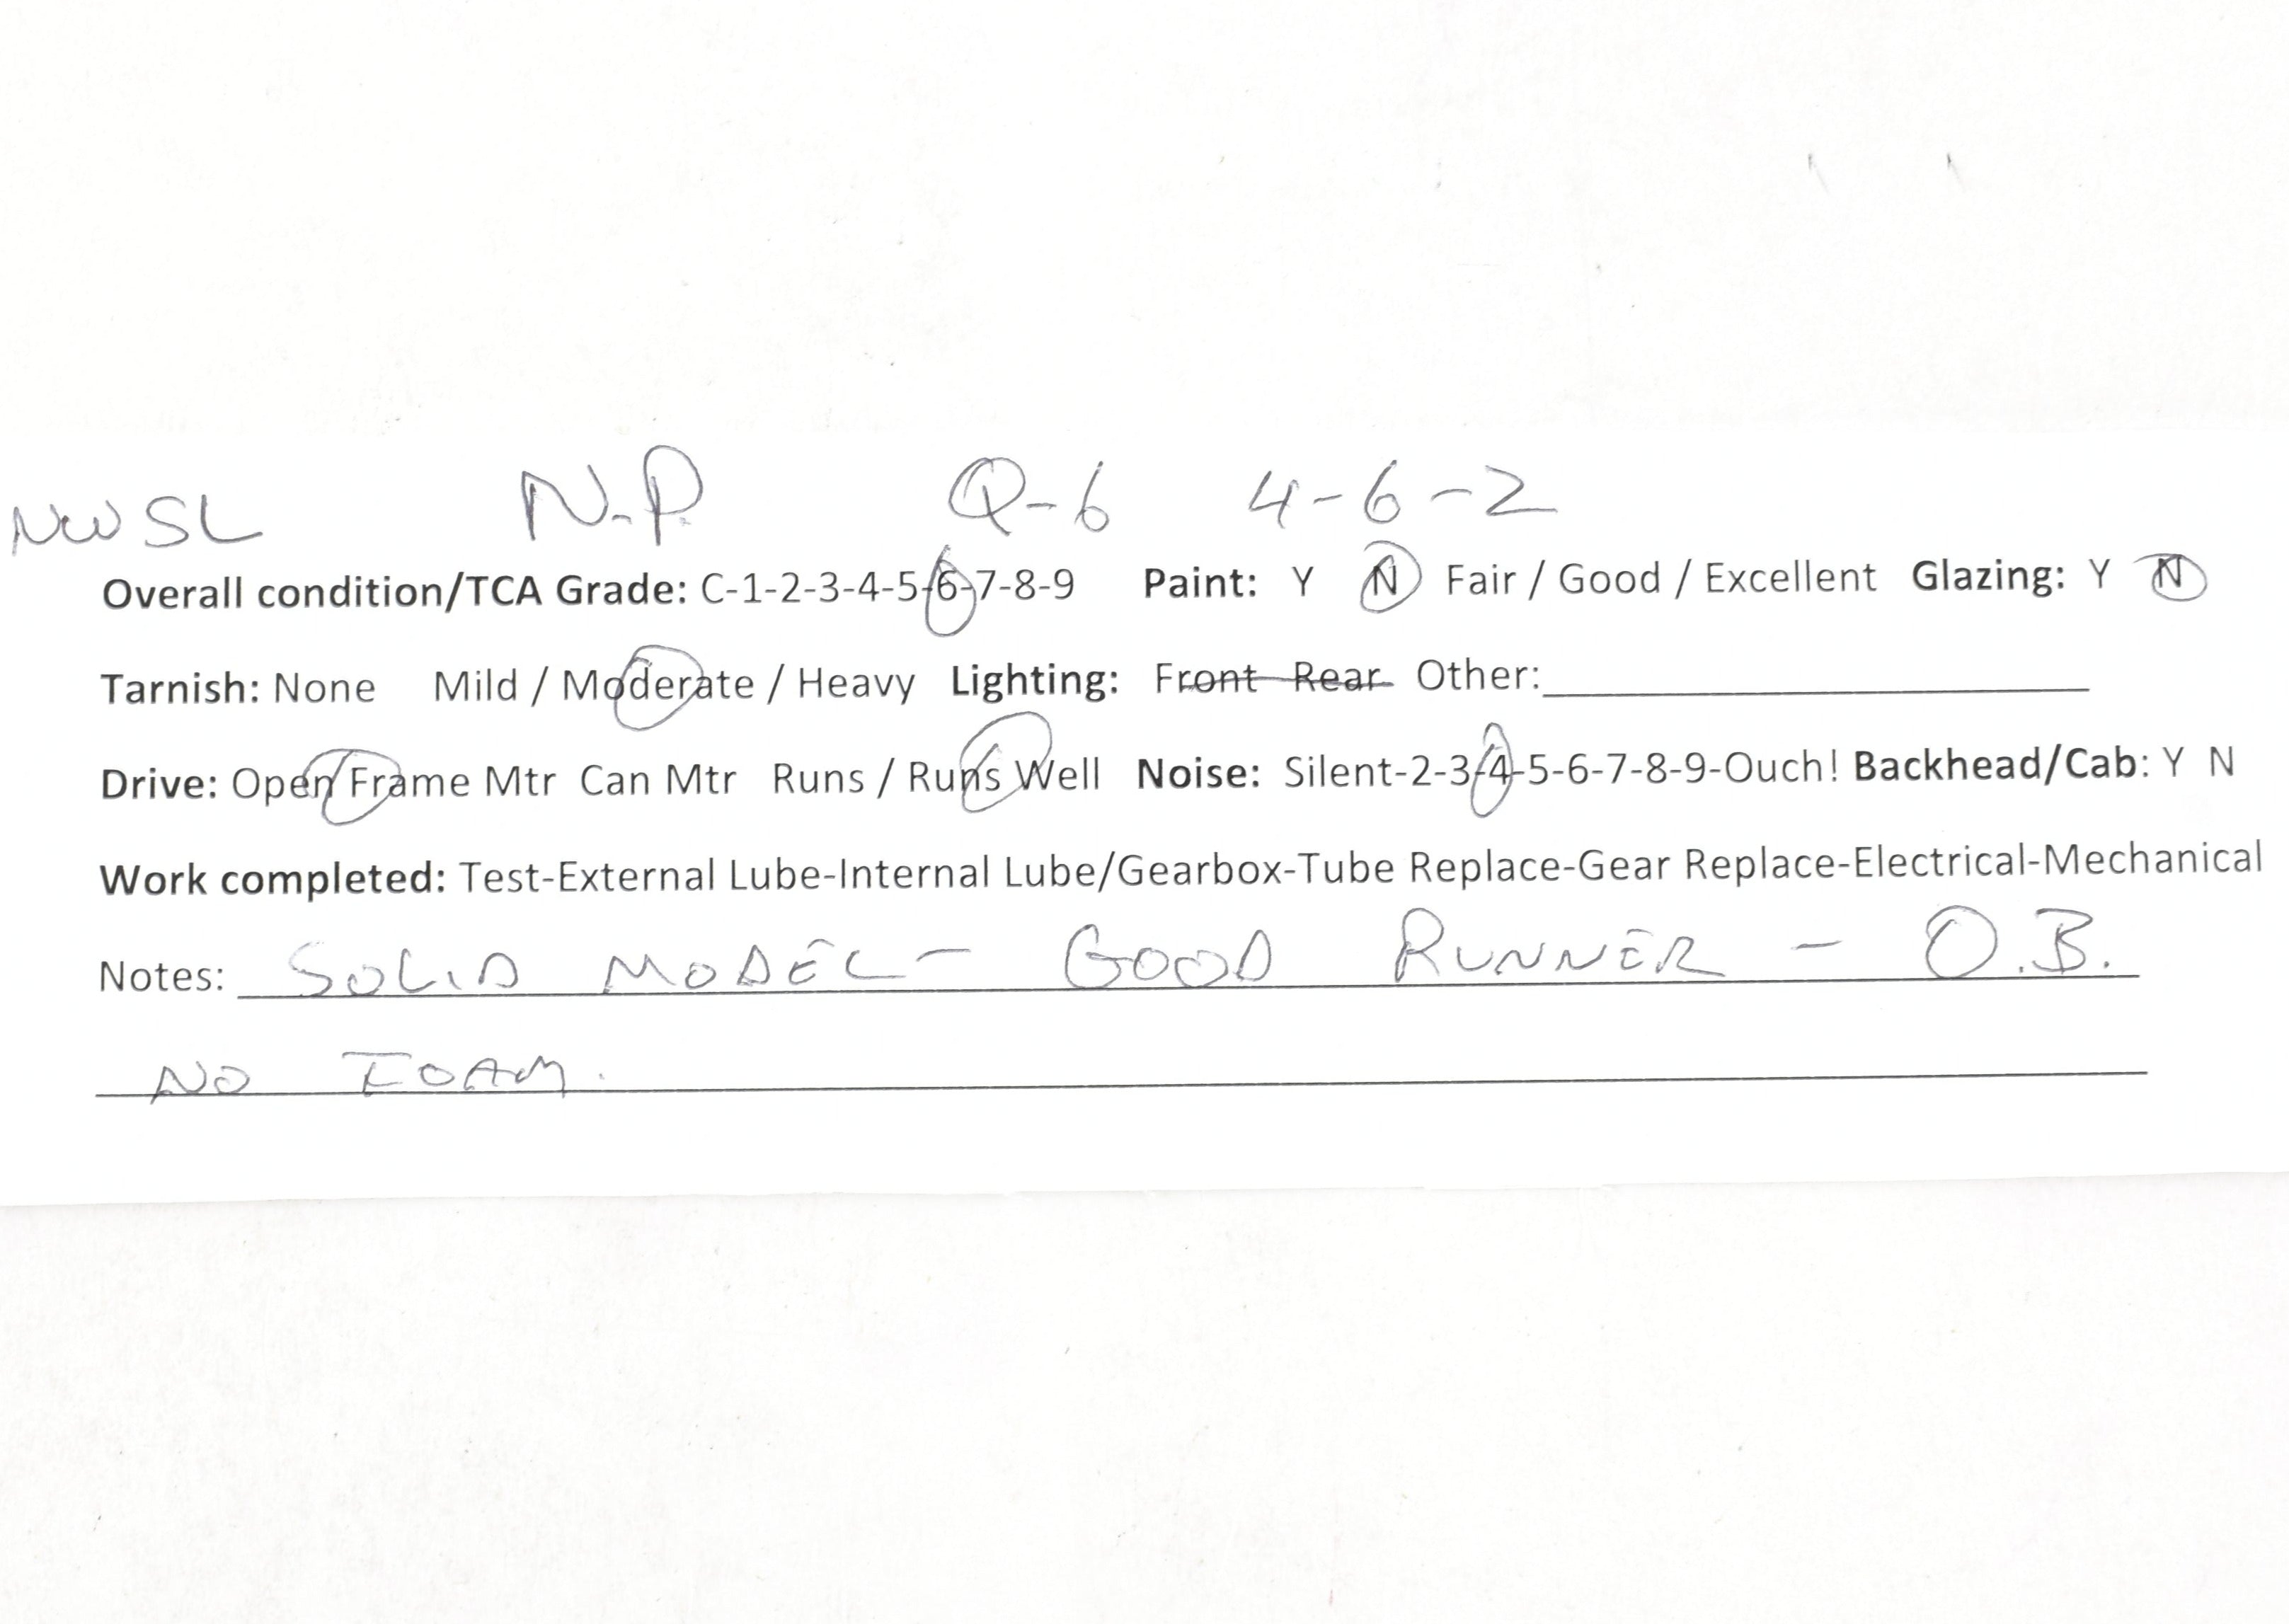 NWSL N.P. Q-6 4-6-2
Overall condition/TCA Grade: C-1-2-3-4-5-6-7-8-9 Paint: Y N Fair / Good / Excellent Glazing: Y N
Tarnish: None Mild / Moderate / Heavy Lighting: Front Rear Other:
Drive: Open Frame Mtr Can Mtr Runs / Runs Well Noise: Silent-2-3-4-5-6-7-8-9-Ouch! Backhead/Cab: Y N
Work completed: Test-External Lube-Internal Lube/Gearbox-Tube Replace-Gear Replace-Electrical-Mechanical
Notes: SOLID MODEL - GOOD RUNNER - O.B.
NO FOAM.